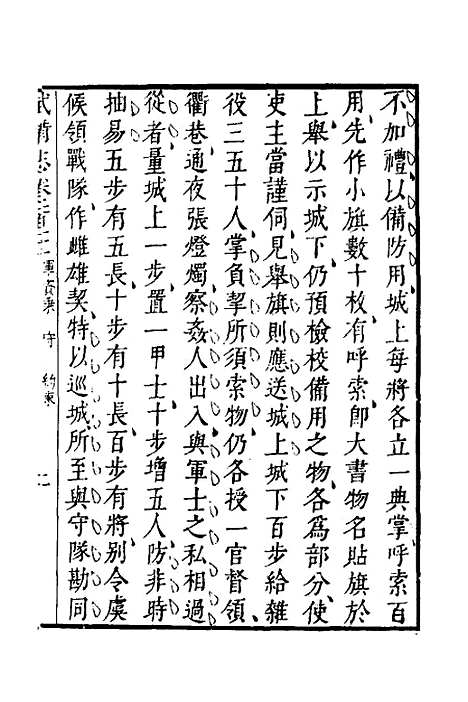 不加禮以備防用城上每將各立一典掌呼索百
用先作小旗數十枚有呼索郎大書物名貼旗於
上舉以示城下仍預檢校備用之物各爲部分使
吏主當謹伺見舉旗則應送城上城下百步給雜
役三五十人掌負挈所須索物仍各授一官督領
衢巷通夜張燈燭察姦人出入與軍士之私相過
從者量城上一步置一甲士十步增五人防非時
抽易五步有五長十步有十長百步有將别令虞
候領戰隊作雌雄契特以巡城所至與守隊勘同
武備志卷 軍資乘 守 約束